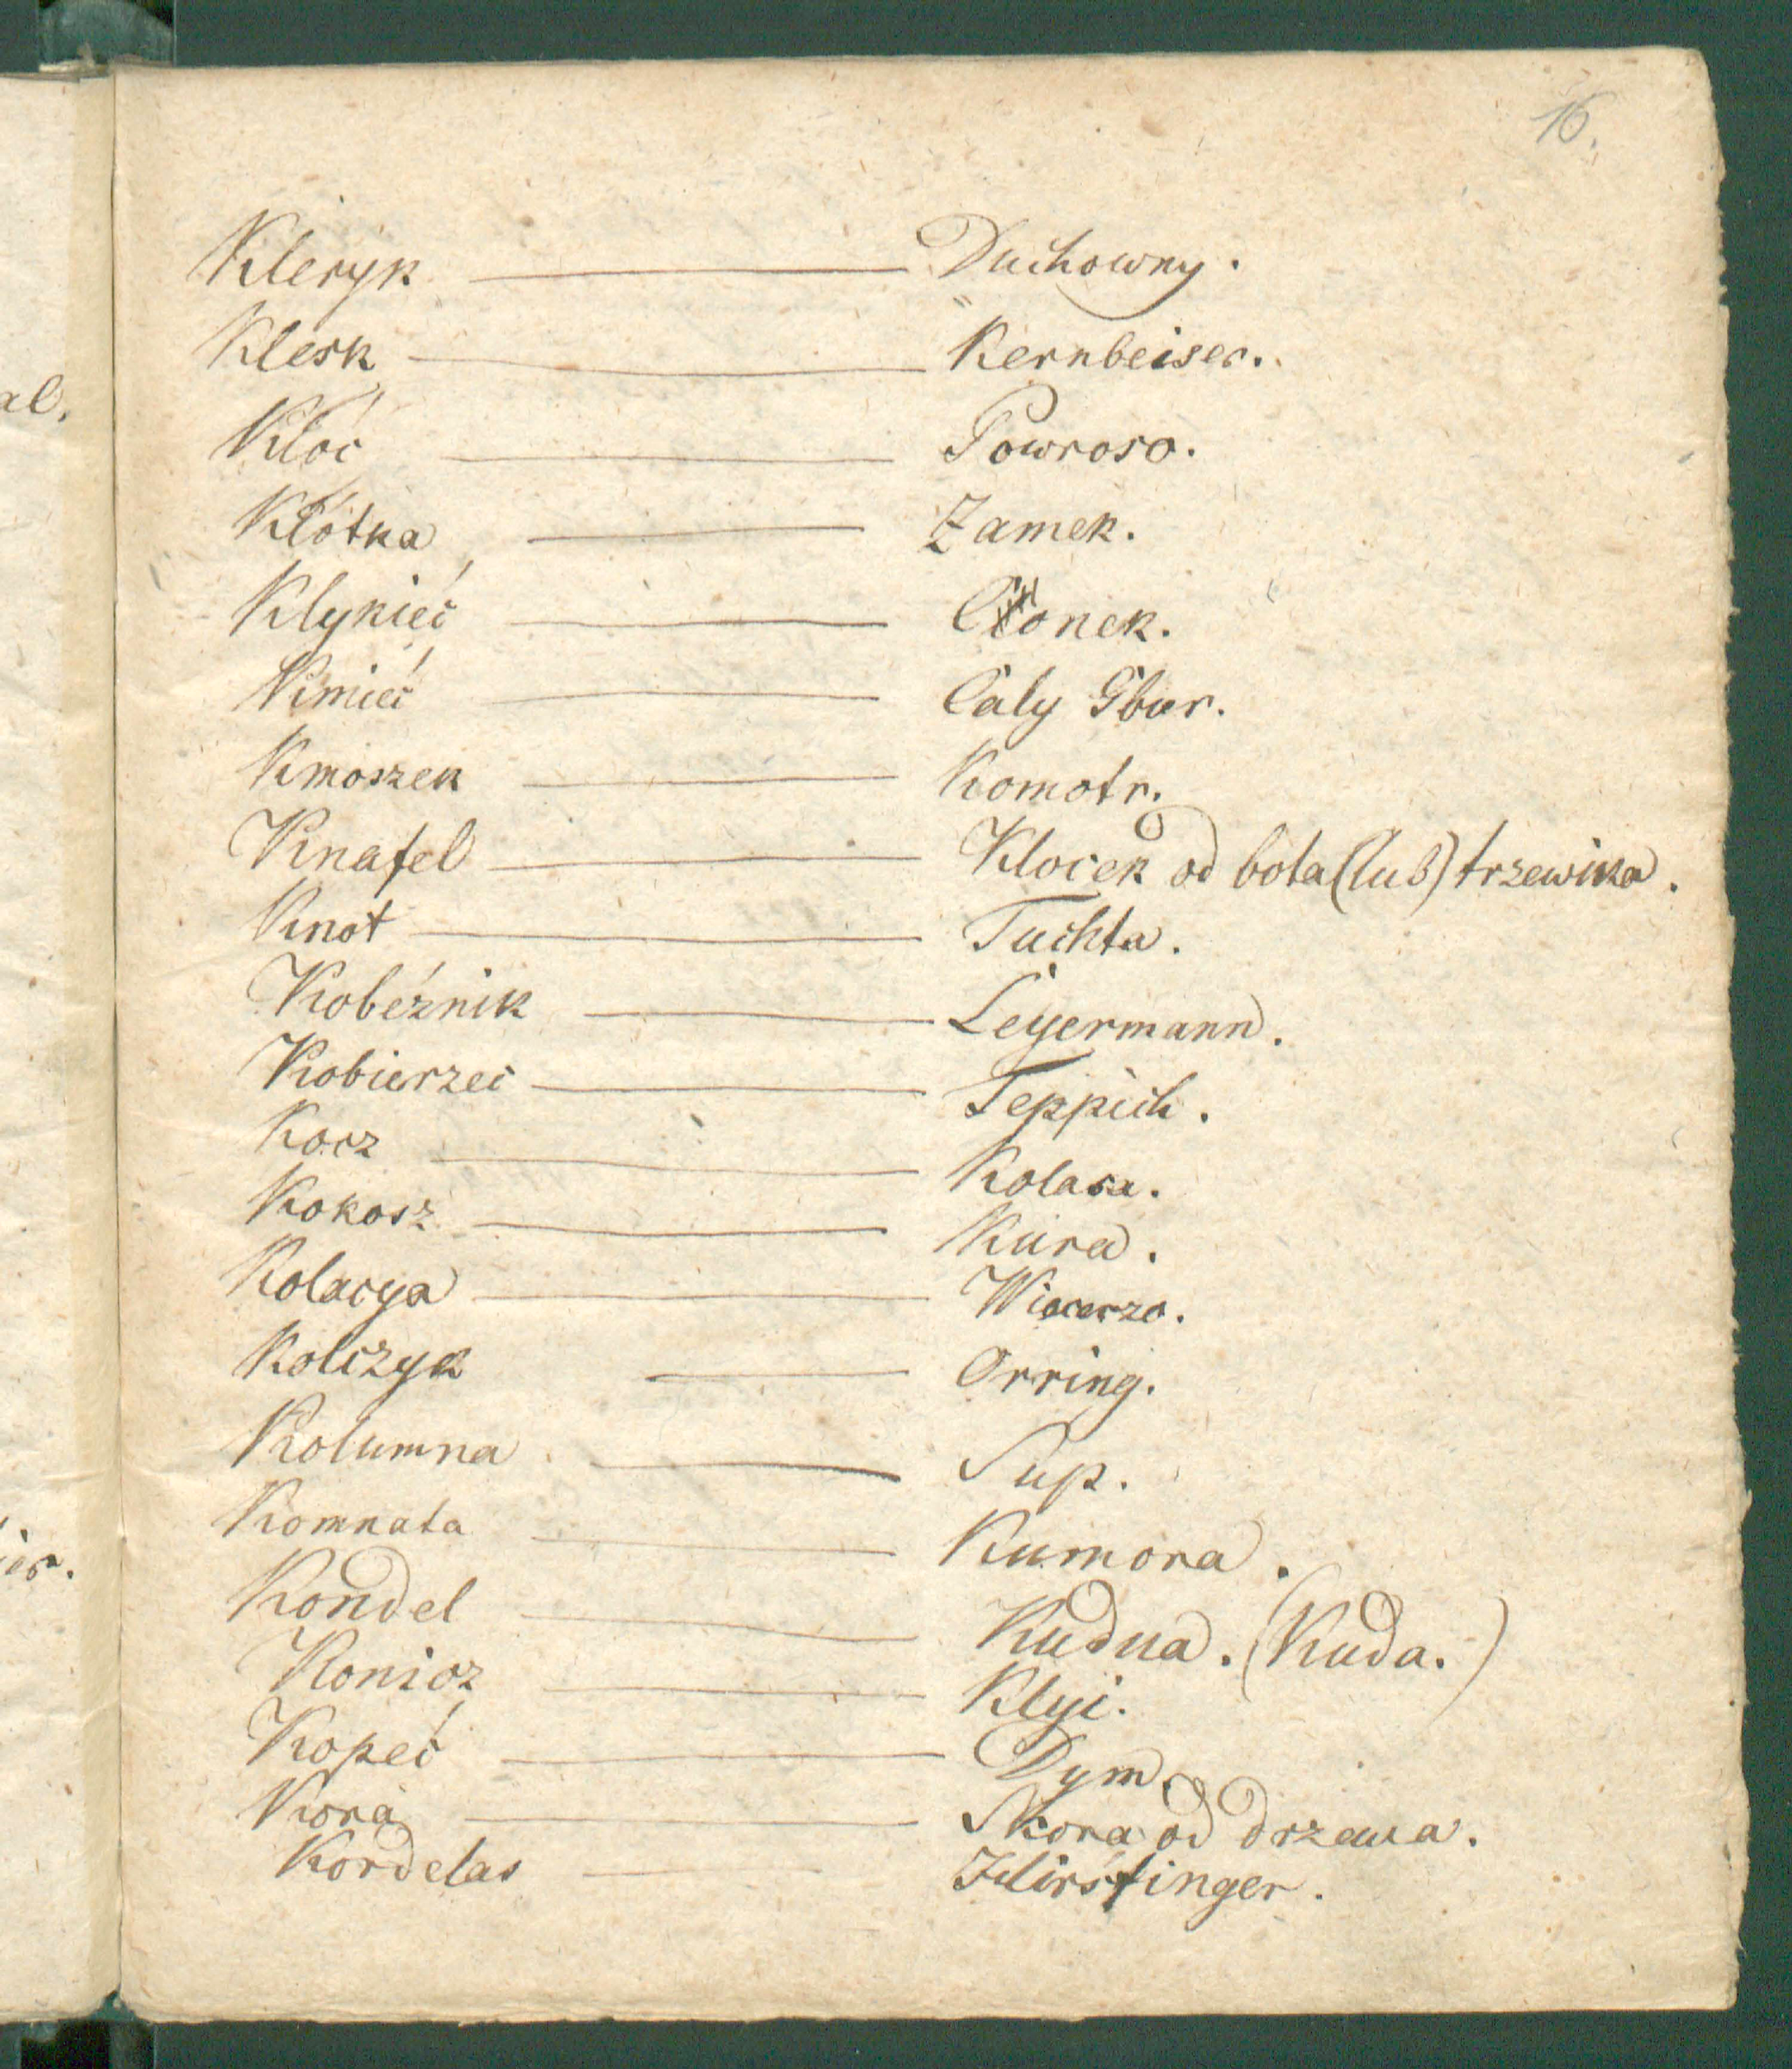 16.
al.
Kleryk — Duchowny.
Klesk — Kernbeiser.
Kłoć — Powroso.
Kłótka — Zamek.
Klykieć — Cłonek.
Kmieć — Caly Gbur.
Kmoszek — Komotr.
Knafel — Klocek od bota (lub) trzewika.
Knot — Tuchta.
Kobeźnik — Leyermann.
Kobierzec — Teppich.
Kocz — Kolasa.
Kokosz — Kura.
Kolacya — Wiecerzo.
Kolczyk — Orring.
Kolumna — Sup.
Komnata — Kumora.
ier.
Kondel — Kudua. (Kuda.)
Konicz — Klyi.
Kopeć — Dym.
Kora — Skora od drzewa.
Kordelas — Hirsfinger.